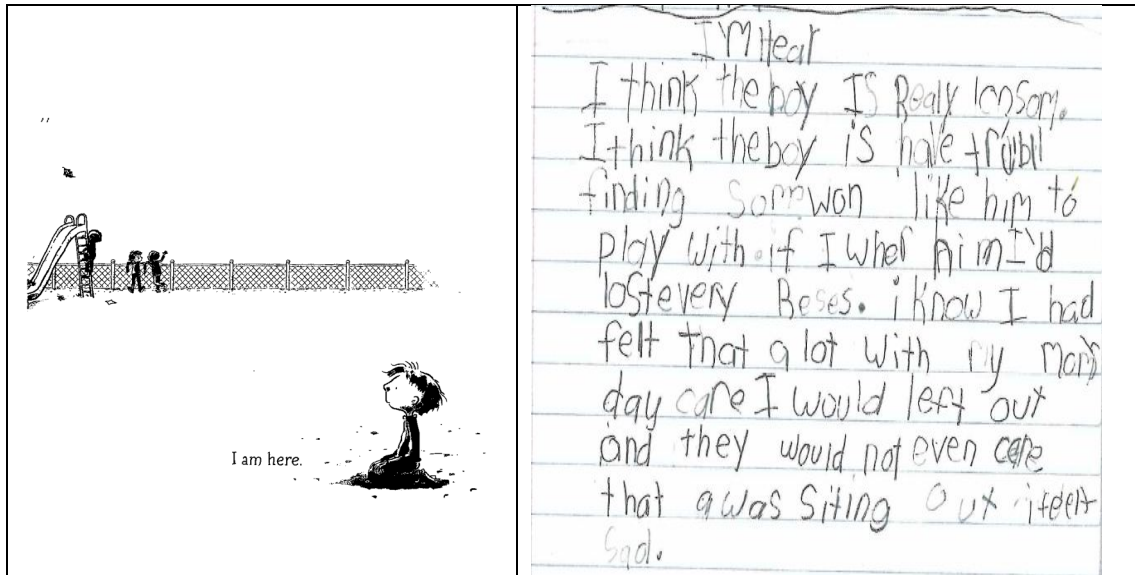 I am here.
I'M Hear
I think the boy IS Realy lonsom.
I think the boy is have troubl
finding somwon like him to
play with. if I wher him I'd
lost every Reses. i know I had
felt that a lot with my mom's
day care I would left out
and they would not even care
that a was siting out i feelt
sad.